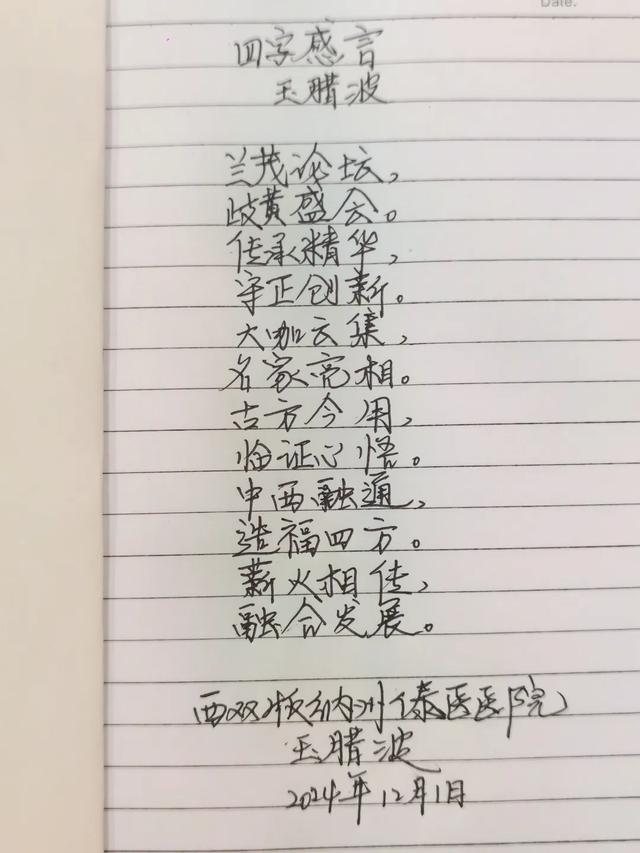 Date.
四字感言
玉腊波
兰茂论坛，
岐黄盛会。
传承精华，
守正创新。
大咖云集，
名家亮相。
古方今用，
临证心悟。
中西融通，
造福四方。
薪火相传，
融合发展。
西双版纳州傣医医院
玉腊波
2024年12月1日